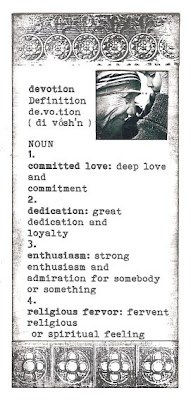 devotion
Definition
de.vo.tion
( di vósh'n )
NOUN
1.
committed love: deep love
and
commitment
2.
dedication: great
dedication and
loyalty
3.
enthusiasm: strong
enthusiasm and
admiration for somebody
or something
4.
religious fervor: fervent
religious
or spiritual feeling